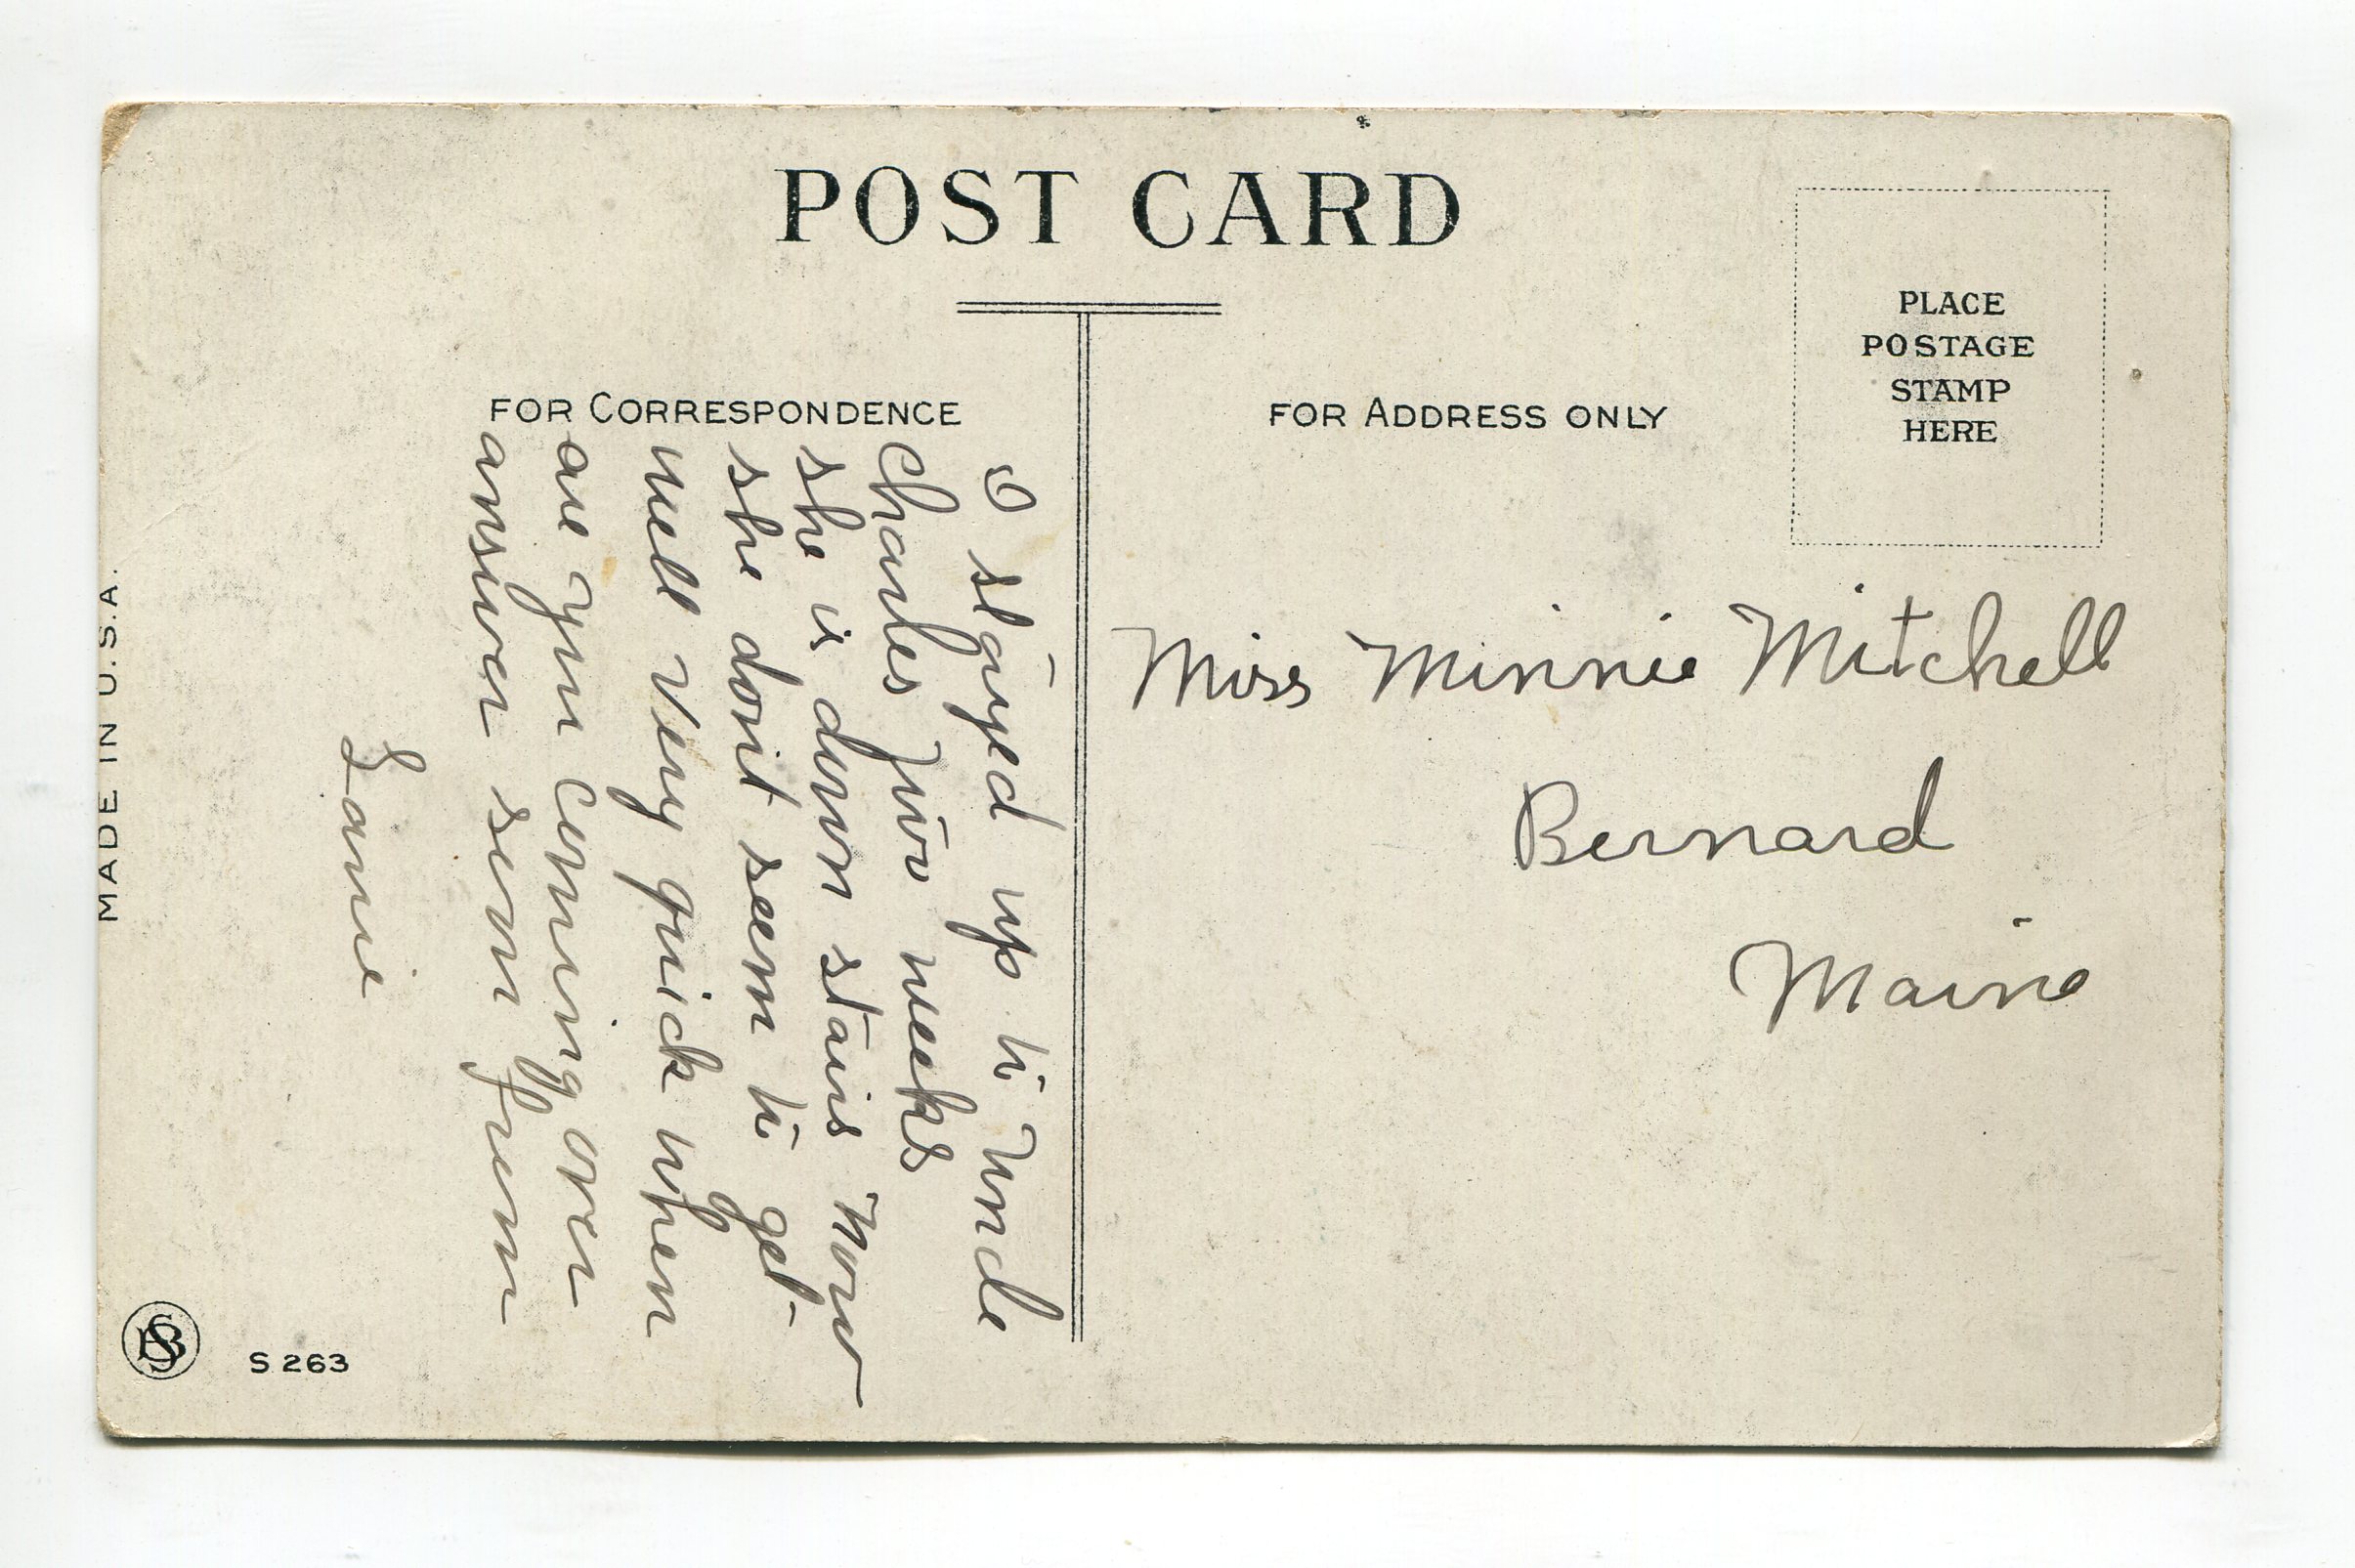 POST CARD
FOR CORRESPONDENCE
FOR ADDRESS ONLY
PLACE
POSTAGE
STAMP
HERE
I stayed up to Uncle
Charles Two weeks
she is down stairs Now
she don't seem to get
well Very quick when
are you coming over
answer soon from
Miss Minnie Mitchell
Bernard
Maine
MADE IN U.S.A.
S 263